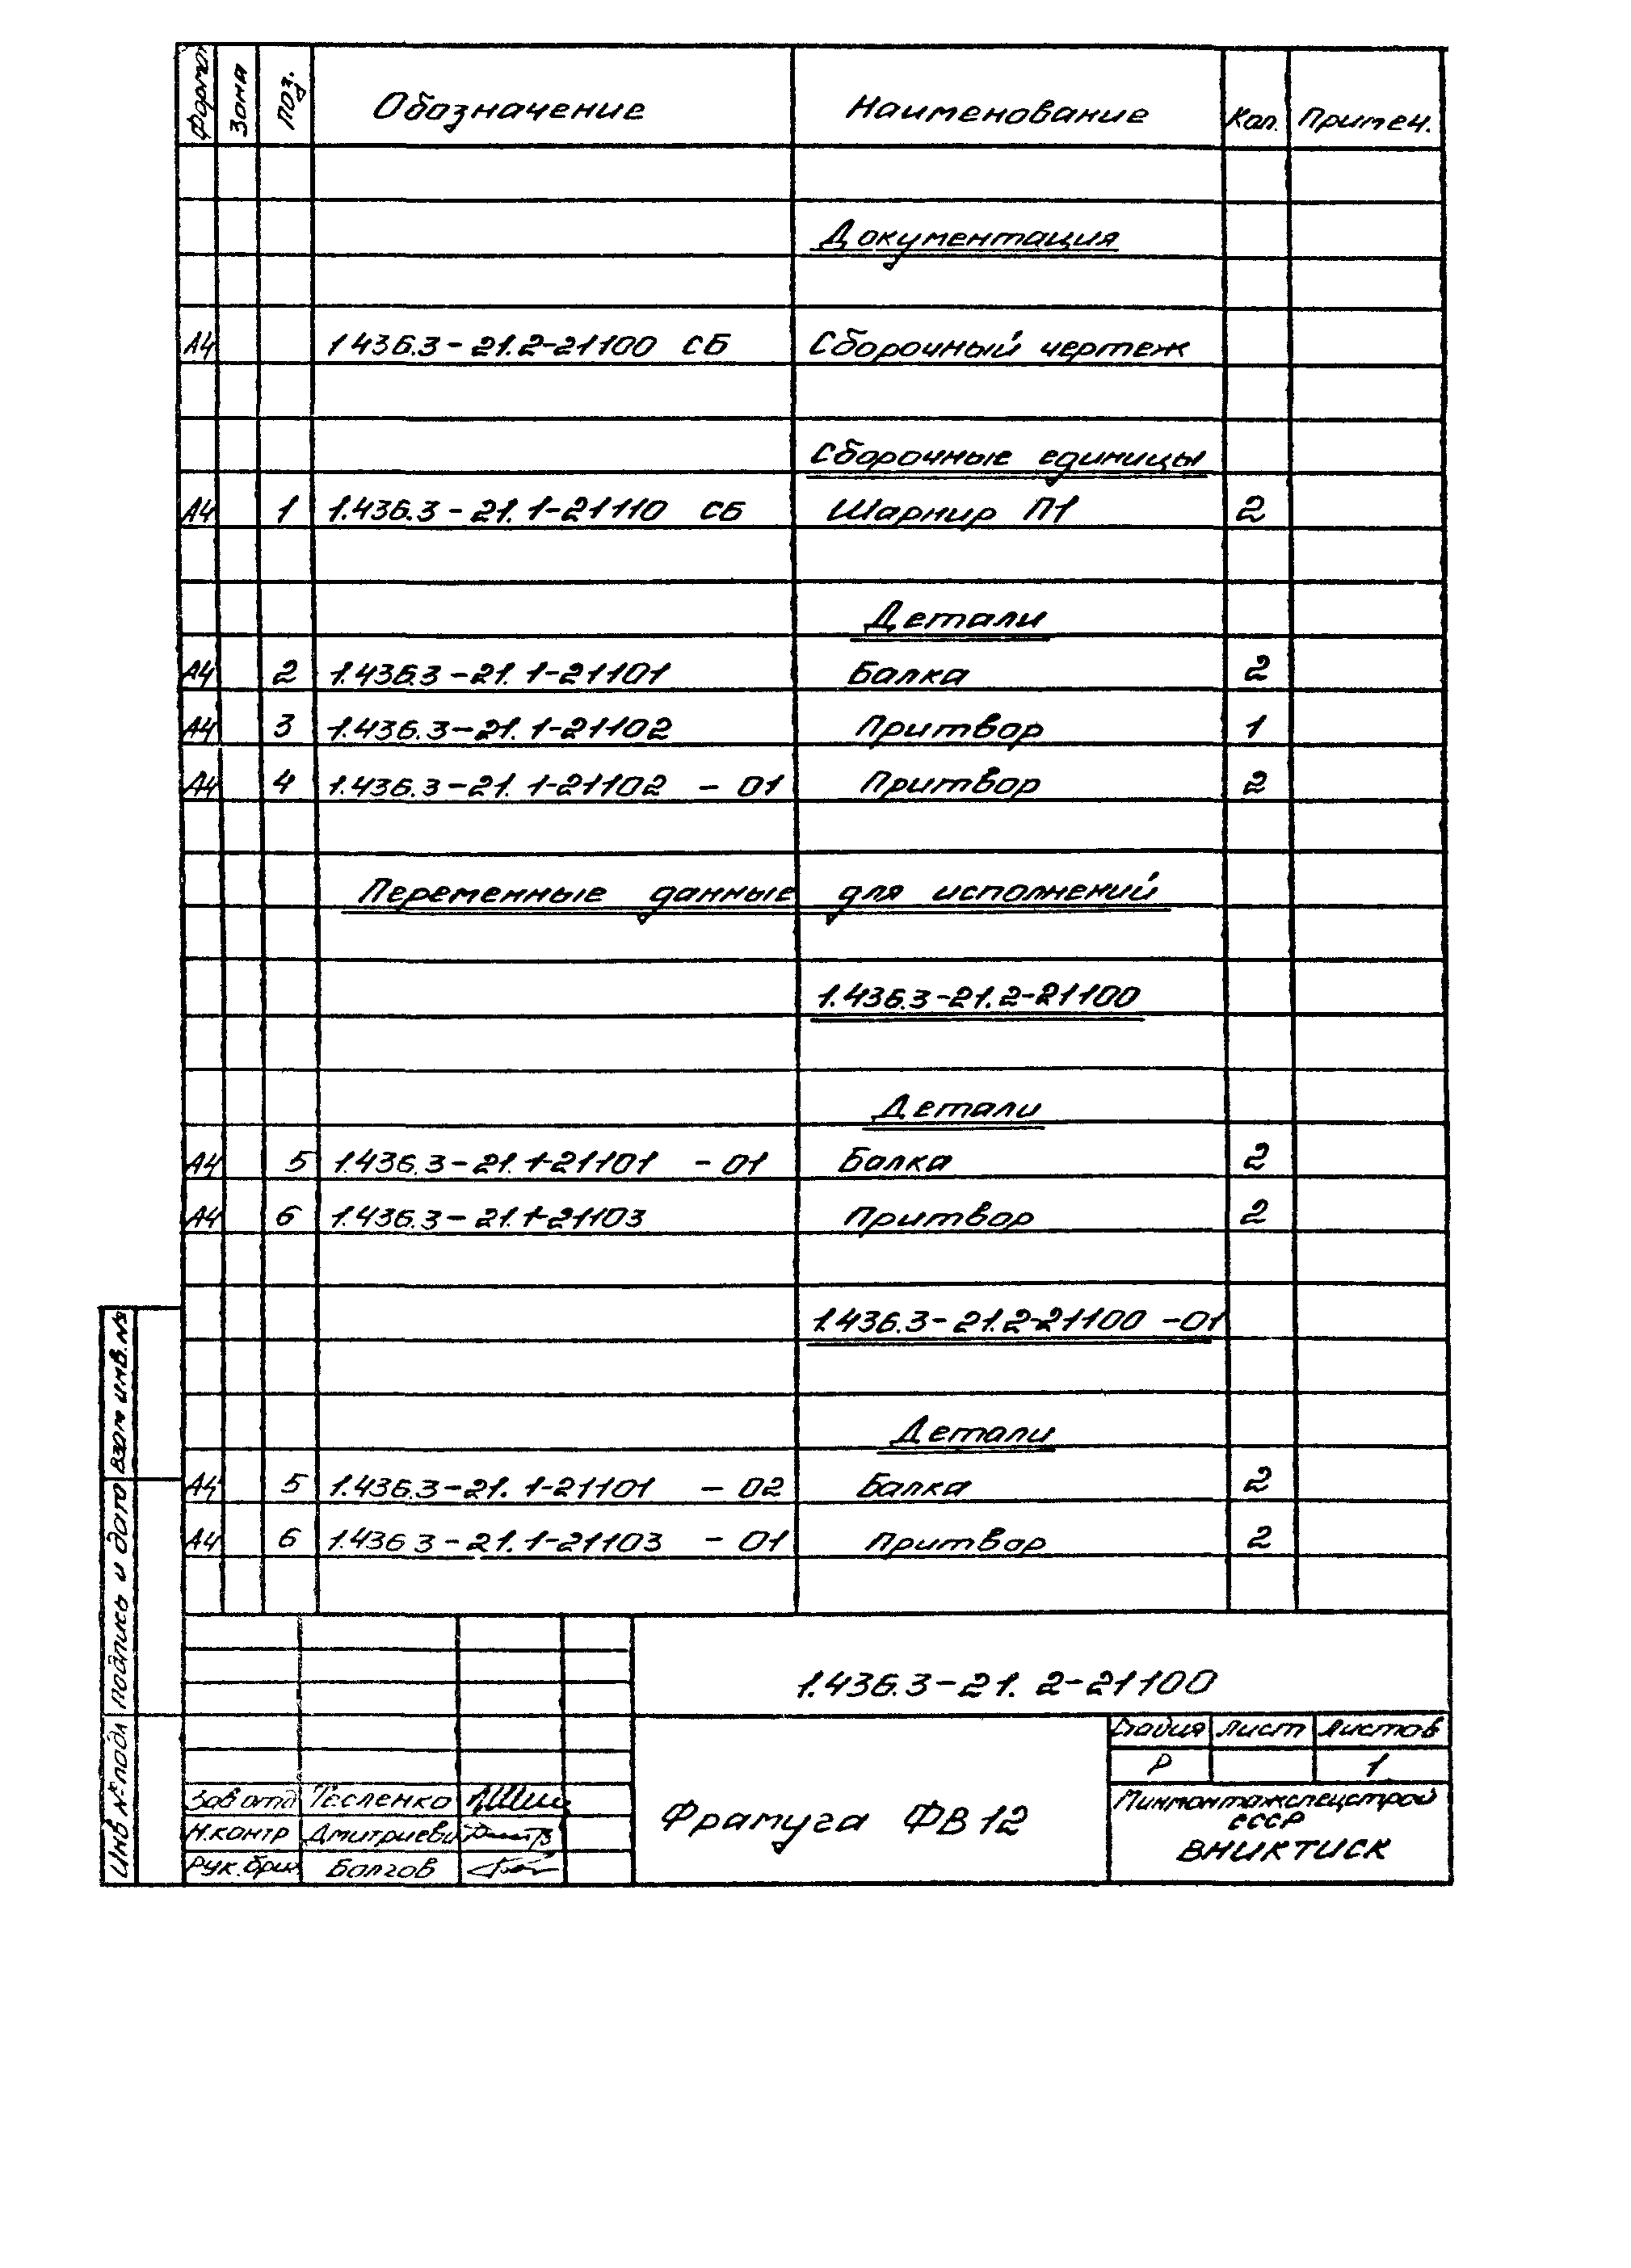 Формат Зона Поз. Обозначение Наименование Кол. Примеч.
Документация
А4 1436.3-21.2-21100 СБ Сборочный чертеж
Сборочные единицы
А4 1 1.436.3-21.1-21110 СБ Шарнир П1 2
Детали
А4 2 1.436.3-21.1-21101 Балка 2
А4 3 1.436.3-21.1-21102 Притвор 1
А4 4 1.436.3-21.1-21102 -01 Притвор 2
Переменные данные для исполнений
1.436.3-21.2-21100
Детали
А4 5 1.436.3-21.1-21101 -01 Балка 2
А4 6 1.436.3-21.1-21103 Притвор 2
1.436.3-21.2-21100 -01
Детали
А4 5 1.436.3-21.1-21101 -02 Балка 2
А4 6 1.436 3-21.1-21103 -01 Притвор 2
Взам инв. №
Подпись и дата
Инв № подл
1.436.3-21.2-21100
Стадия Лист Листов
Р 1
Зав отд Тесленко
Н.контр Дмитриева
Рук. бриг Болгов
Фрамуга ФВ 12
Минмонтажспецстрой
СССР
ВНИКТИСК